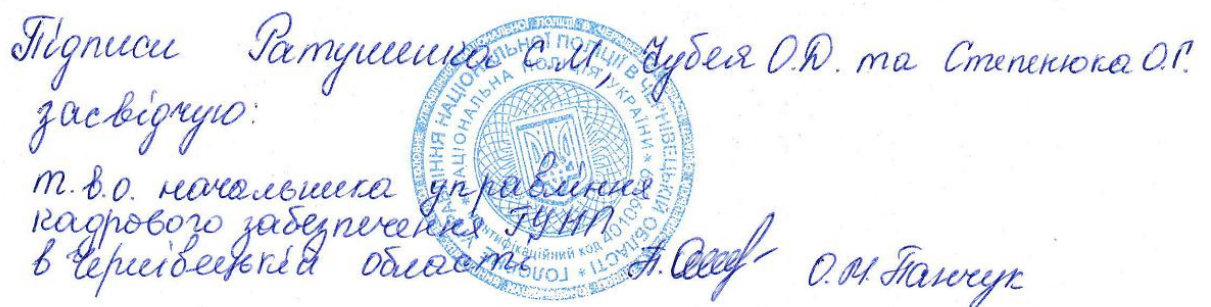 Підписи Ратушенка С.М, Чубея О.Д. та Степенюка О.Г.
засвідчую:
т.в.о. начальника управління
кадрового забезпечення ГУНП
в Чернівецькій області О.М. Панчук
ГОЛОВНЕ УПРАВЛІННЯ НАЦІОНАЛЬНОЇ ПОЛІЦІЇ В ЧЕРНІВЕЦЬКІЙ ОБЛАСТІ *
* НАЦІОНАЛЬНА ПОЛІЦІЯ УКРАЇНИ *